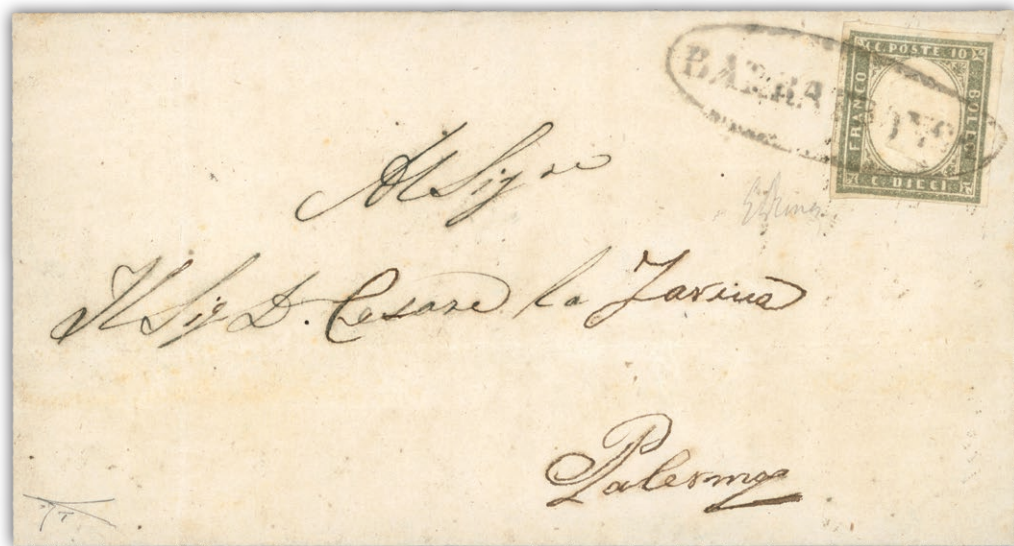 C. POSTE 10
FRANCO
BOLLO
C. DIECI
Al Sigre
Il Sig D. Cesare la
Palermo